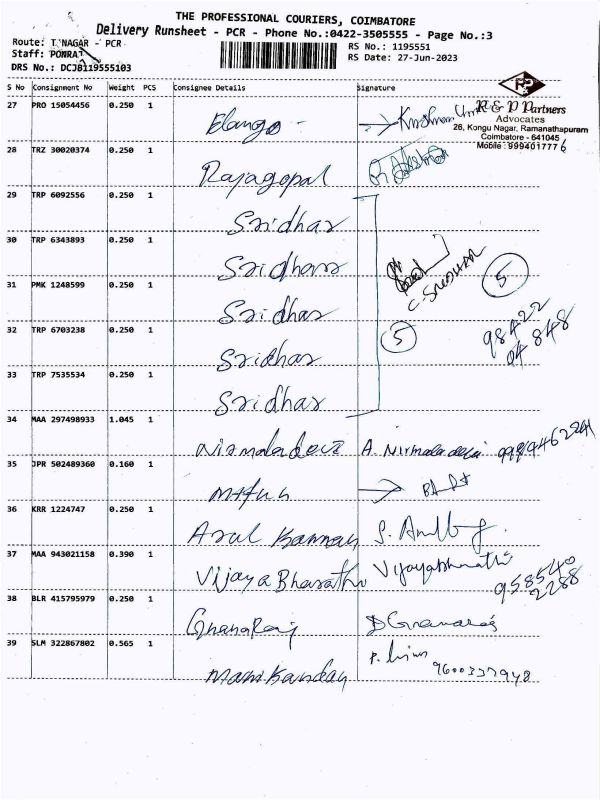 THE PROFESSIONAL COURIERS, COIMBATORE
Delivery Runsheet - PCR - Phone No.:0422-3505555 - Page No.:3
Route: T NAGAR - PCR
RS No.: 1195551
Staff: PONRAJ
RS Date: 27-Jun-2023
DRS No.: DCJB119555103
S No Consignment No Weight PCS Consignee Details Signature
27 PRO 15054456 0.250 1 Elango
R & P Partners
Advocates
26, Kongu Nagar, Ramanathapuram
Coimbatore - 641045
Mobile : 9994017776
28 TRZ 30020374 0.250 1 Rajagopal
29 TRP 6092556 0.250 1 Sridhar
30 TRP 6343893 0.250 1 Sridhar
31 PMK 1248599 0.250 1 Sridhar
C. Sridhar
5
32 TRP 6703238 0.250 1 Sridhar
5
98422
04848
33 TRP 7535534 0.250 1 Sridhar
34 MAA 297498933 1.045 1 Nirmaladevi A. Nirmala devi
35 JPR 502489360 0.160 1 Mithun
36 KRR 1224747 0.250 1 Arul Kannan
37 MAA 943021158 0.390 1 Vijaya Bharathi Vijayabharathi
958540
2288
38 BLR 415795979 0.250 1 Gnana Raj D Gnanaraj
39 SLM 322867802 0.565 1 Mani Kandan
9600337948